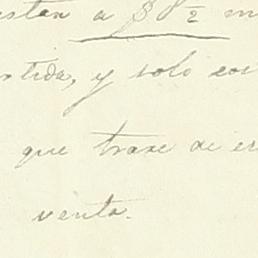 estan a $8 1/2 m
rtida, y solo
que traxe de
venta.